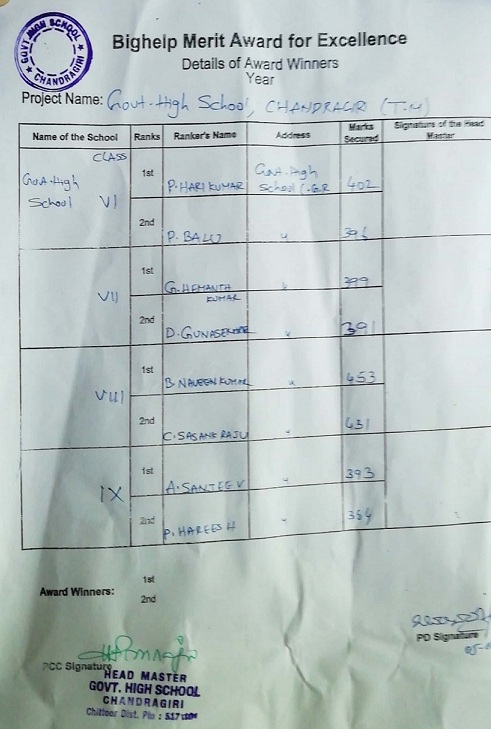 GOVT HIGH SCHOOL
★ CHANDRAGIRI ★
Bighelp Merit Award for Excellence
Details of Award Winners
Year
Project Name: Govt. High School, CHANDRAGIRI (T.M)
Name of the School Ranks Ranker's Name Address Marks Secured Signature of the Head Master
CLASS
Govt. High School VI 1st P. HARI KUMAR Govt. High School C.G.R 402
2nd P. BALU "
VII 1st G. HEMANTH KUMAR " 399
2nd D. GUNASEKHAR " 391
VIII 1st B. NAVEEN KUMAR " 453
2nd C. SASANK RAJU " 431
IX 1st A. SANJEEV " 393
2nd P. HAREESH " 384
Award Winners: 1st
2nd
PCC Signature
HEAD MASTER
GOVT. HIGH SCHOOL
CHANDRAGIRI
Chittoor Dist. Pin : 517
PD Signature